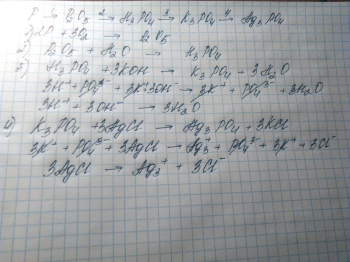 P →¹ P₂O₅ ²→ H₃PO₄ ³→ K₃PO₄ ⁴→ Ag₃PO₄
1) 2P + 5O₂ → P₂O₅
2) P₂O₅ + H₂O → H₃PO₄
3) H₃PO₄ + 3KOH → K₃PO₄ + 3H₂O
3H⁺ + PO₄³⁻ + 3K⁺ 3OH⁻ → 3K⁺ + PO₄³⁻ + 3H₂O
3H⁺ + 3OH⁻ → 3H₂O
4) K₃PO₄ + 3AgCl → Ag₃PO₄ + 3KCl
3K⁺ + PO₄³⁻ + 3AgCl → Ag₃⁺ + PO₄³⁻ + 3K⁺ + 3Cl⁻
3AgCl → Ag₃⁺ + 3Cl⁻